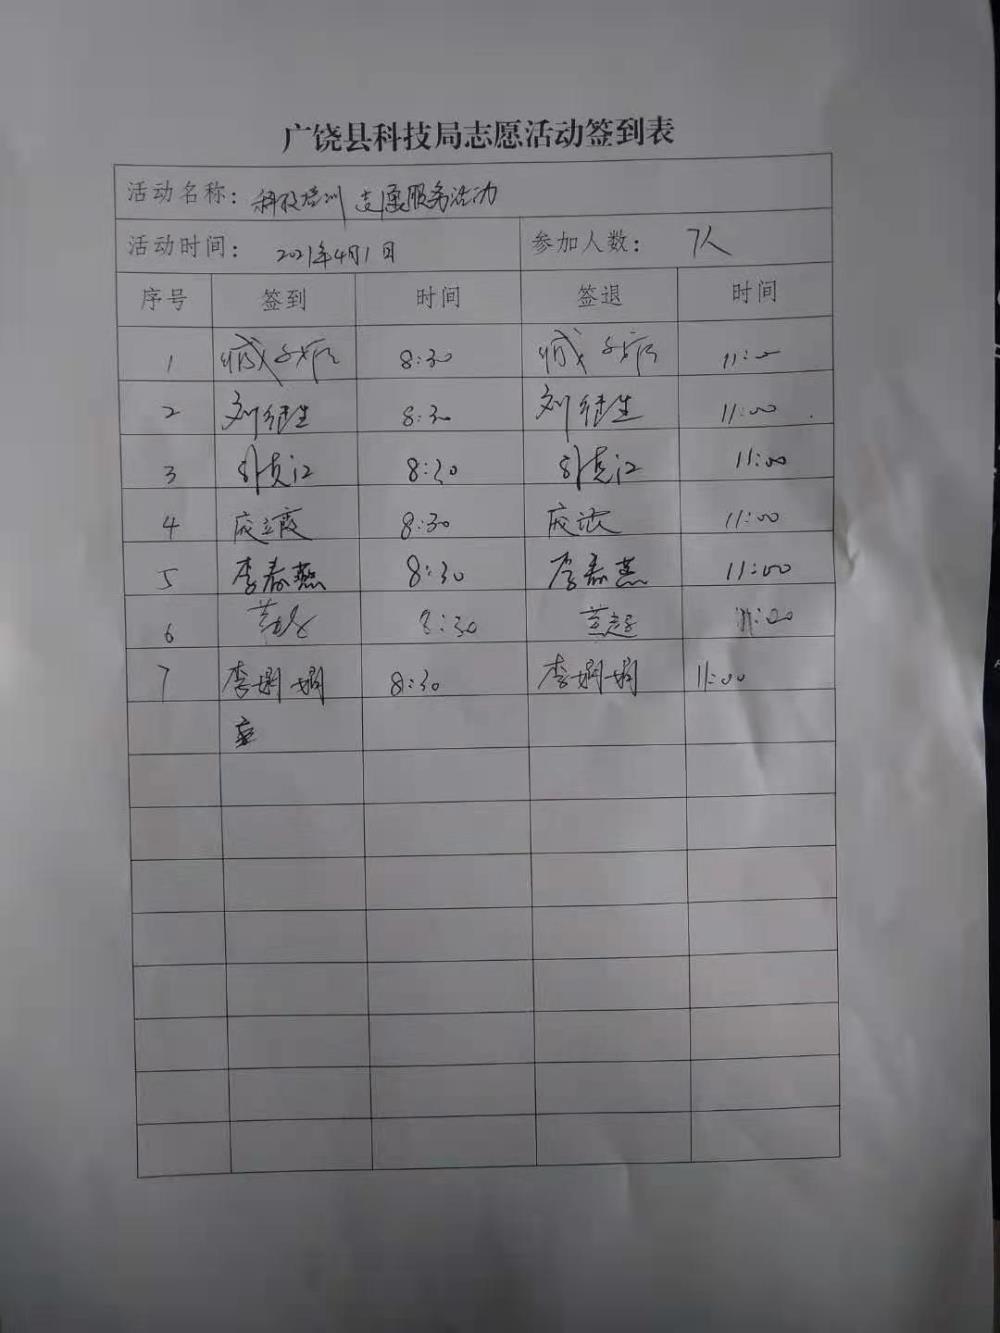 广饶县科技局志愿活动签到表
活动名称: 科技培训 志愿服务活动
活动时间: 2021年4月1日 参加人数: 7人
序号 签到 时间 签退 时间
1 8:30 11:00
2 刘继生 8:30 刘继生 11:00
3 8:30 11:00
4 8:30 11:00
5 李春燕 8:30 李春燕 11:00
6 8:30 11:00
7 李娴娴 8:30 李娴娴 11:00